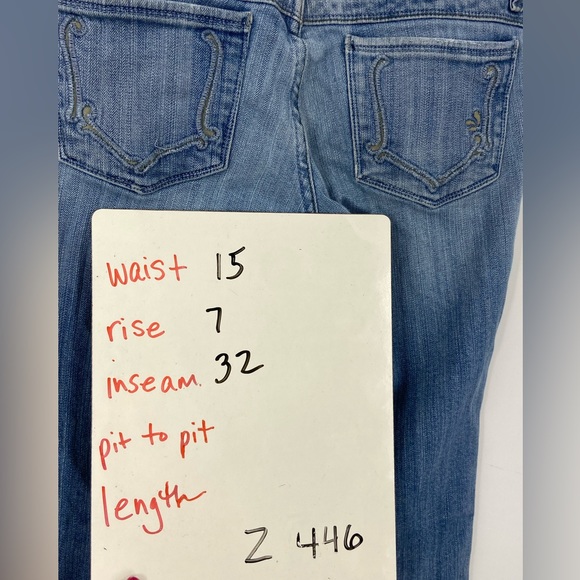 waist 15
rise 7
inseam. 32
pit to pit
length
Z 446